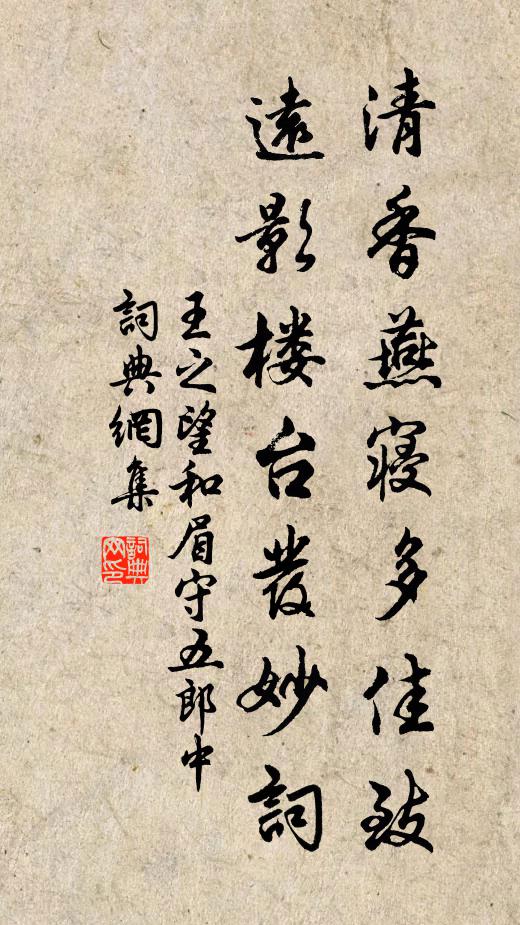 清香燕寝多佳致
遠影楼台發妙詞
王之望和眉守五郎中
詞典網集
詞典网印